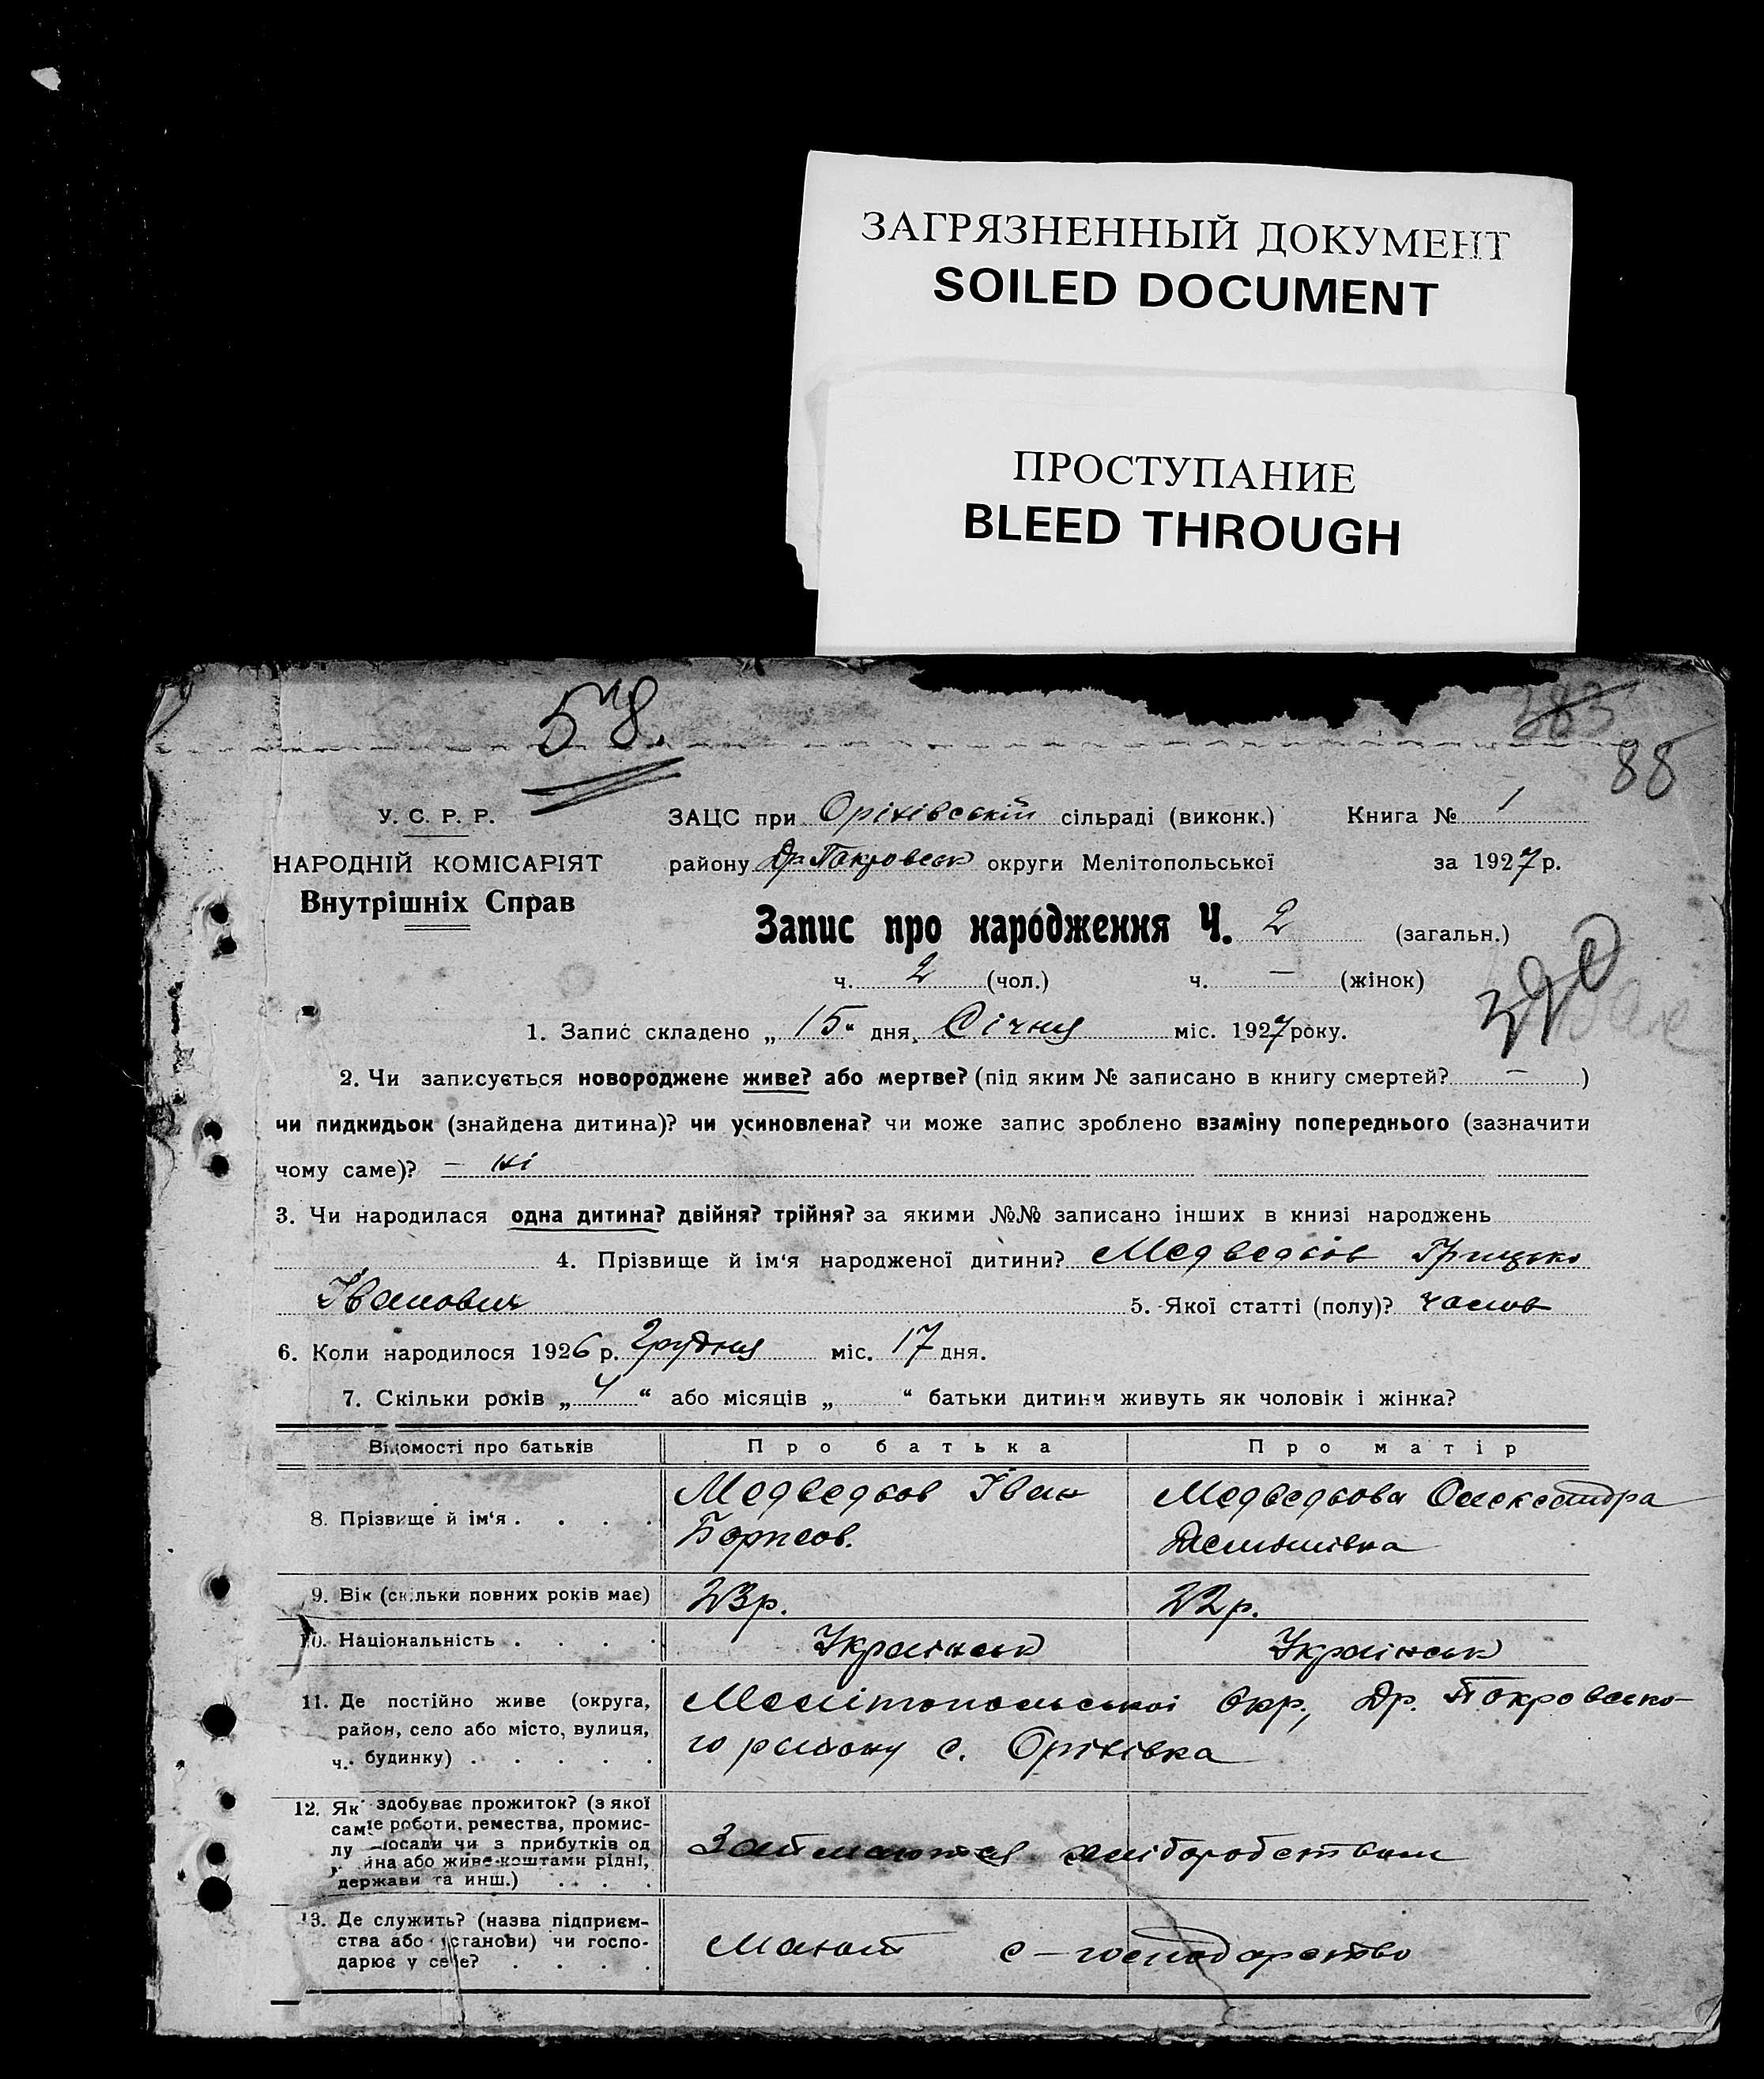 ЗАГРЯЗНЕННЫЙ ДОКУМЕНТ
SOILED DOCUMENT
ПРОСТУПАНИЕ
BLEED THROUGH
58.
383
88
У. С. Р. Р.
НАРОДНІЙ КОМІСАРІЯТ
Внутрішніх Справ
ЗАЦС при Оріхівській сільраді (виконк.) Книга № 1
району Др Покровськ округи Мелітопольської за 1927 р.
Запис про народження Ч. 2 (загальн.)
ч. 2 (чол.) ч. — (жінок)
390
1. Запис складено „ 15 “ дня, Січня міс. 1927 року.
2. Чи записується новороджене живе? або мертве? (під яким № записано в книгу смертей? — )
чи пидкидьок (знайдена дитина)? чи усиновлена? чи може запис зроблено взаміну попереднього (зазначити
чому саме)? — ні
3. Чи народилася одна дитина? двійня? трійня? за якими №№ записано інших в книзі народжень
4. Прізвище й ім‘я народженої дитини? Медведков Грицько
Іванович 5. Якої статті (полу)? чолов
6. Коли народилося 1926 р. Грудня міс. 17 дня.
7. Скільки років „ 4 “ або місяців „ “ батьки дитини живуть як чоловік і жінка?
Відомості про батьків Про батька Про матір
8. Прізвище й ім‘я . . . . Медведков Іван Борисов. Медведкова Олександра
9. Вік (скільки повних років має) 23р. 22р.
10. Національність . . . . Українськ Українськ
11. Де постійно живе (округа, район, село або місто, вулиця, ч. будинку) . . . . . Мелітопольської Окр., Др. Покровсько-
го району с. Оріхівка
12. Як здобуває прожиток? (з якої
саме роботи, ремества, промис-
лу посади чи з прибутків од
майна або живе коштами рідні,
держави та инш.) . . . . Займаються хліборобством
13. Де служить? (назва підприєм-
ства або установи) чи госпо-
дарює у селе? . . . . Мають с–господарство